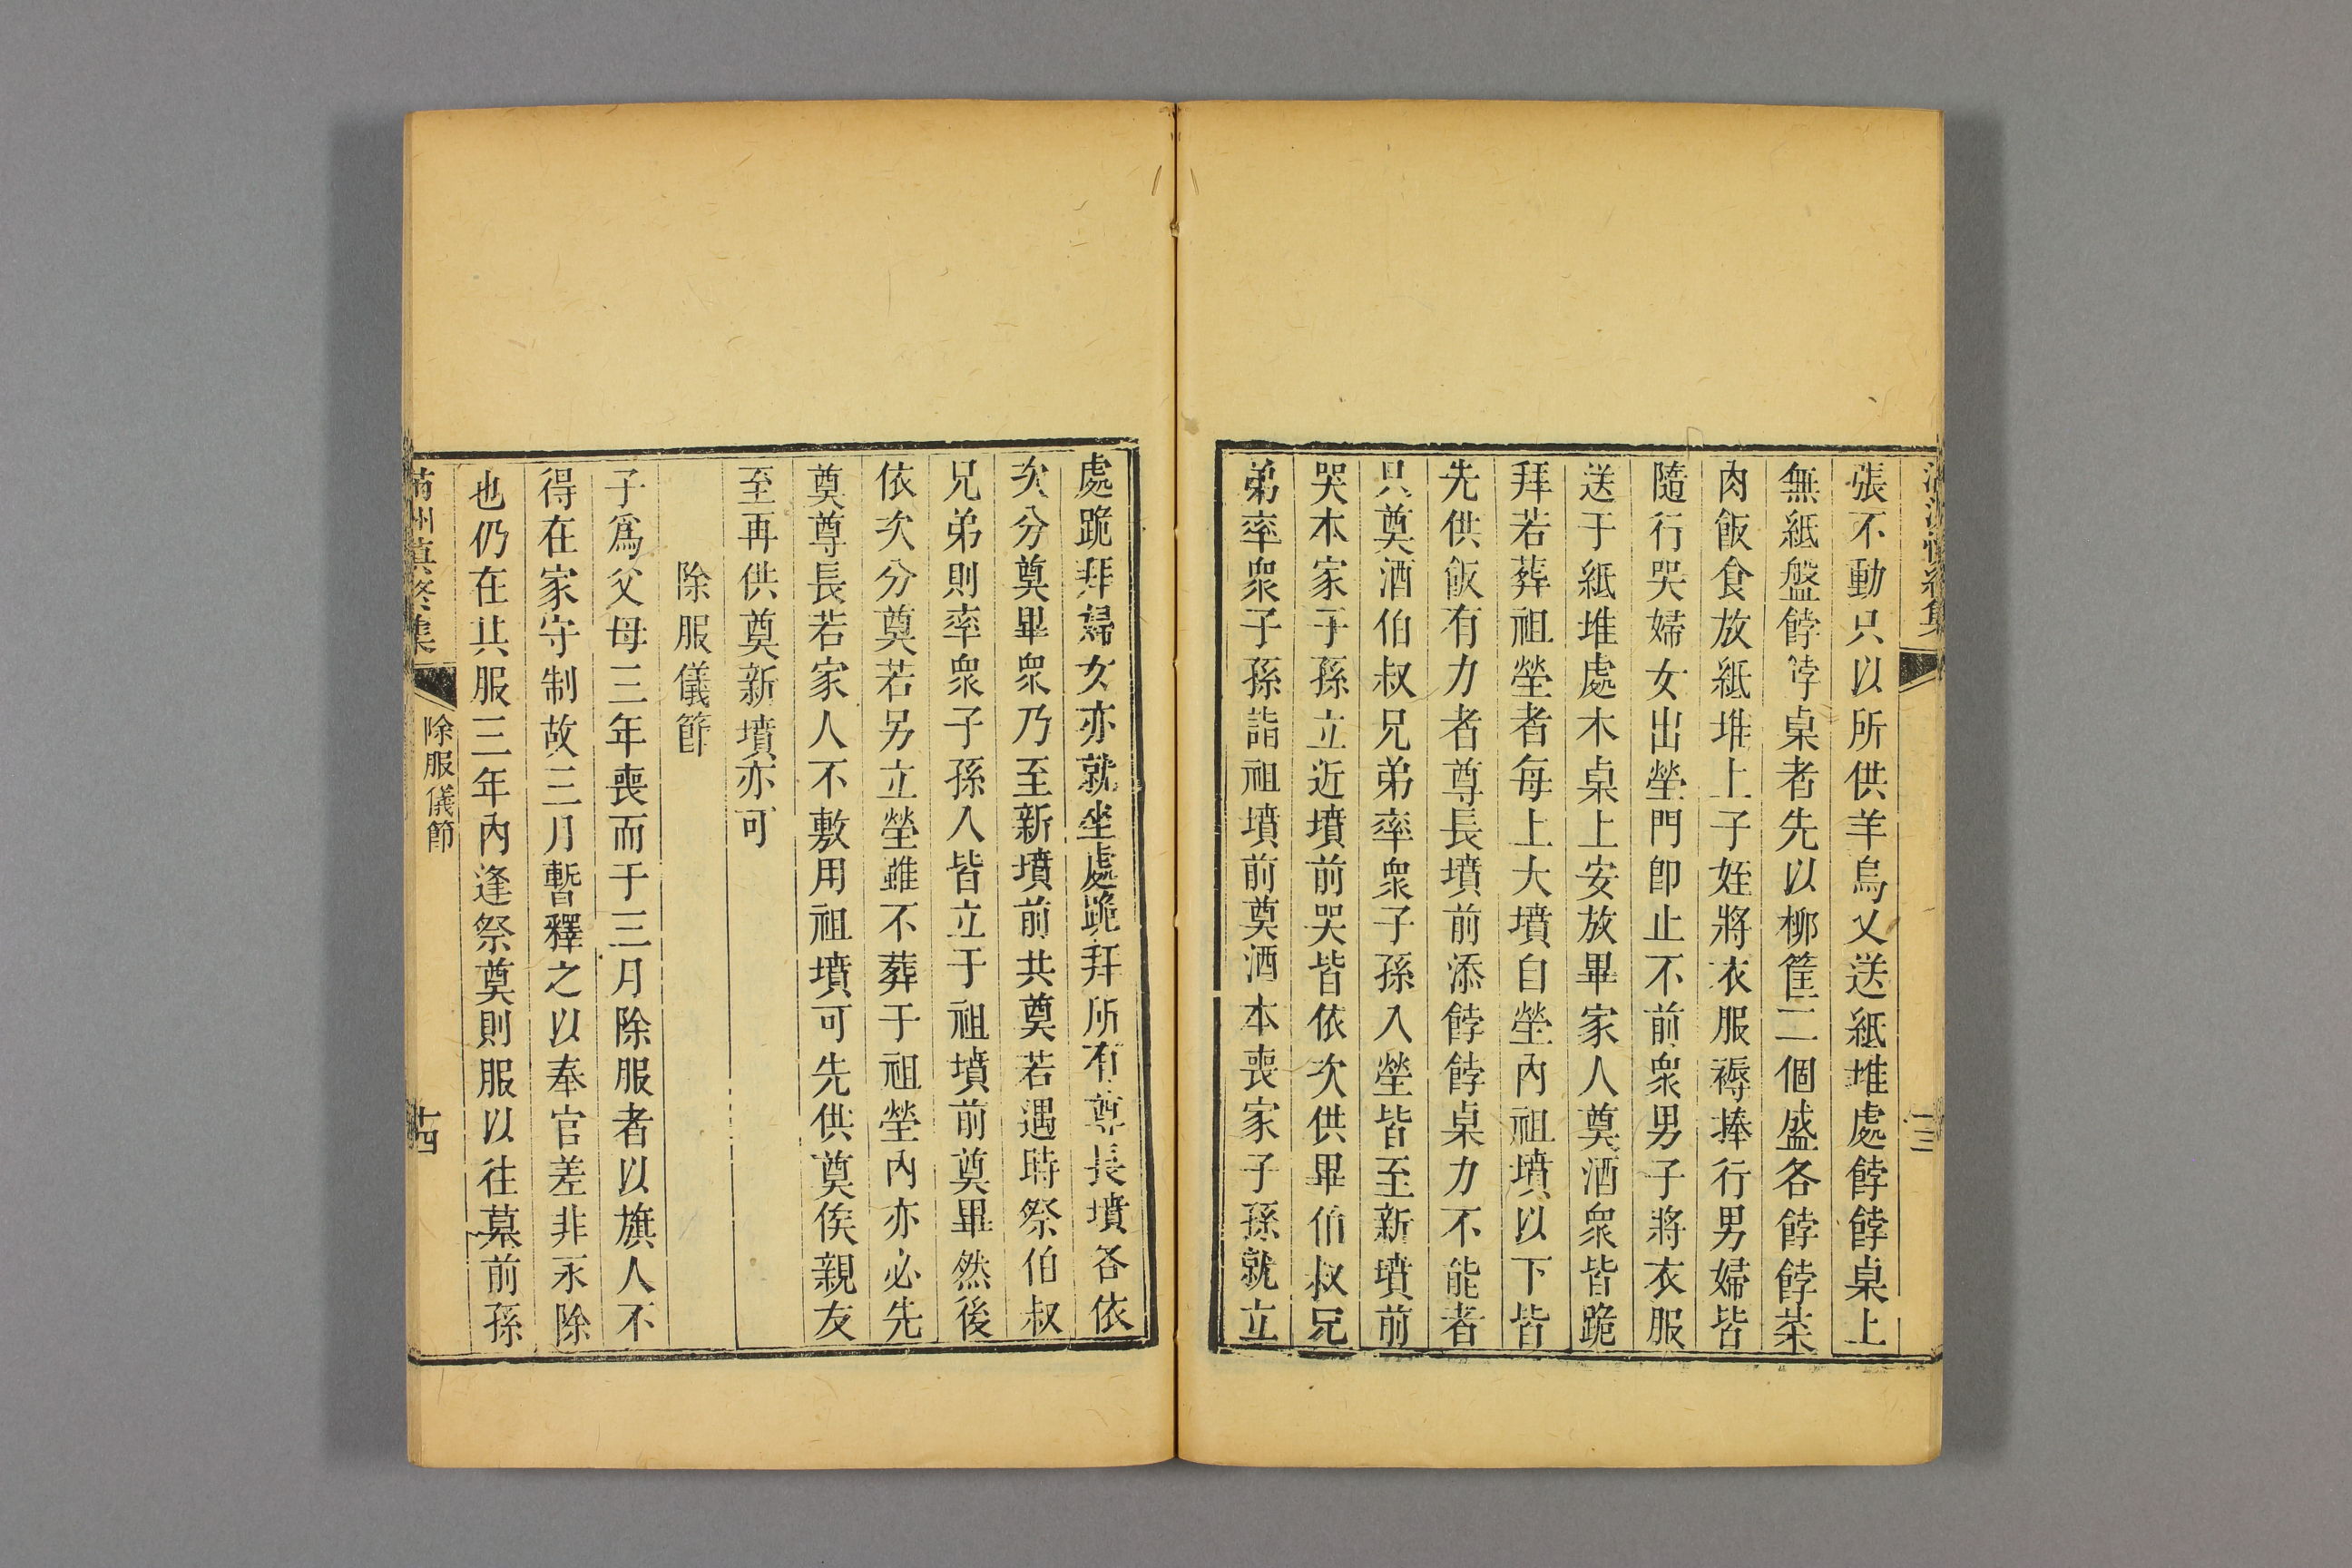 張不動只以所供羊烏乂送紙堆處餑餑桌上
無紙盤餑餑桌者先以柳筐二個盛各餑餑菜
肉飯食放紙堆上子姪將衣服褥捧行男婦皆
隨行哭婦女出塋門卽止不前衆男子將衣服
送于紙堆處木桌上安放畢家人奠酒衆皆跪
拜若葬祖塋者每上大墳自塋內祖墳以下皆
先供飯有力者尊長墳前添餑餑桌力不能者
只奠酒伯叔兄弟率衆子孫入塋皆至新墳前
哭本家子孫立近墳前哭皆依次供畢伯叔兄
弟率衆子孫詣祖墳前奠酒本喪家子孫就立
處跪拜婦女亦就坐處跪拜所有尊長墳各依
次分奠畢衆乃至新墳前共奠若遇時祭伯叔
兄弟則率衆子孫入皆立于祖墳前奠畢然後
依次分奠若另立塋雖不葬于祖塋內亦必先
奠尊長若家人不敷用祖墳可先供奠俟親友
至再供奠新墳亦可
除服儀節
子爲父母三年喪而于三月除服者以旗人不
得在家守制故三月暫釋之以奉官差非永除
也仍在其服三年內逢祭奠則服以往墓前孫
滿洲慎終集
除服儀節
十四